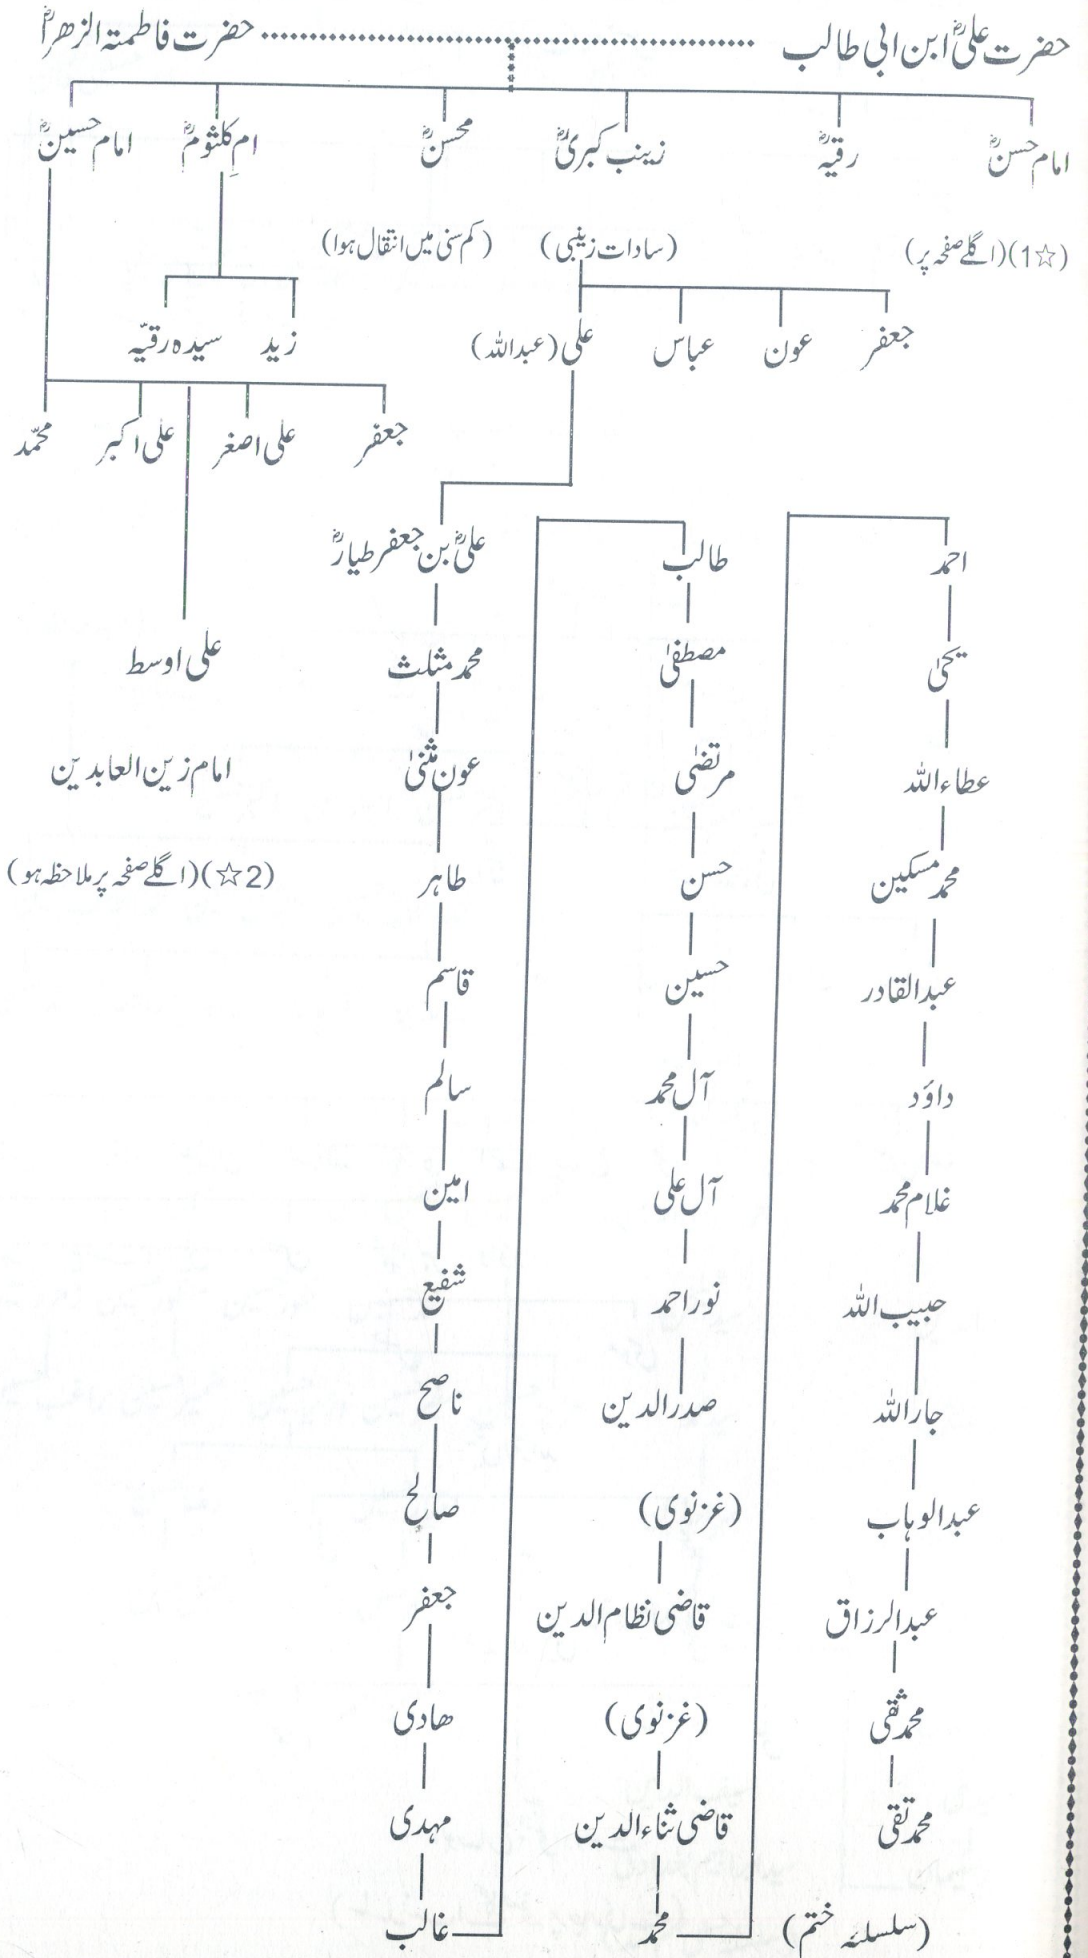 حضرت علیؓ ابن ابی طالب ........ حضرت فاطمتہ الزھراؓ
امام حسنؓ رقیہؓ زینب کبریٰؓ محسنؓ ام کلثومؓ امام حسینؓ
(☆1)(اگلے صفحہ پر) (سادات زینبی) (کم سنی میں انتقال ہوا)
جعفر عون عباس علی (عبداللہ) زید سیدہ رقیّہ
جعفر علی اصغر علی اکبر محمّد
علیؓ بن جعفر طیارؓ
محمد مثلث
عون مثنیٰ
طاہر
قاسم
سالم
امین
شفیع
ناصح
صالح
جعفر
ھادی
مہدی
غالب
طالب
مصطفیٰ
مرتضٰی
حسن
حسین
آل محمد
آل علی
نور احمد
صدرالدین
(غزنوی)
قاضی نظام الدین
(غزنوی)
قاضی ثناءالدین
محمد
احمد
یحیٰی
عطاءاللہ
محمد مسکین
عبدالقادر
داؤد
غلام محمد
حبیب اللہ
جاراللہ
عبدالوہاب
عبدالرزاق
محمد ثقی
محمد تقی
(سلسلئہ ختم)
علی اوسط
امام زین العابدین
(☆2)(اگلے صفحہ پر ملاحظہ ہو)